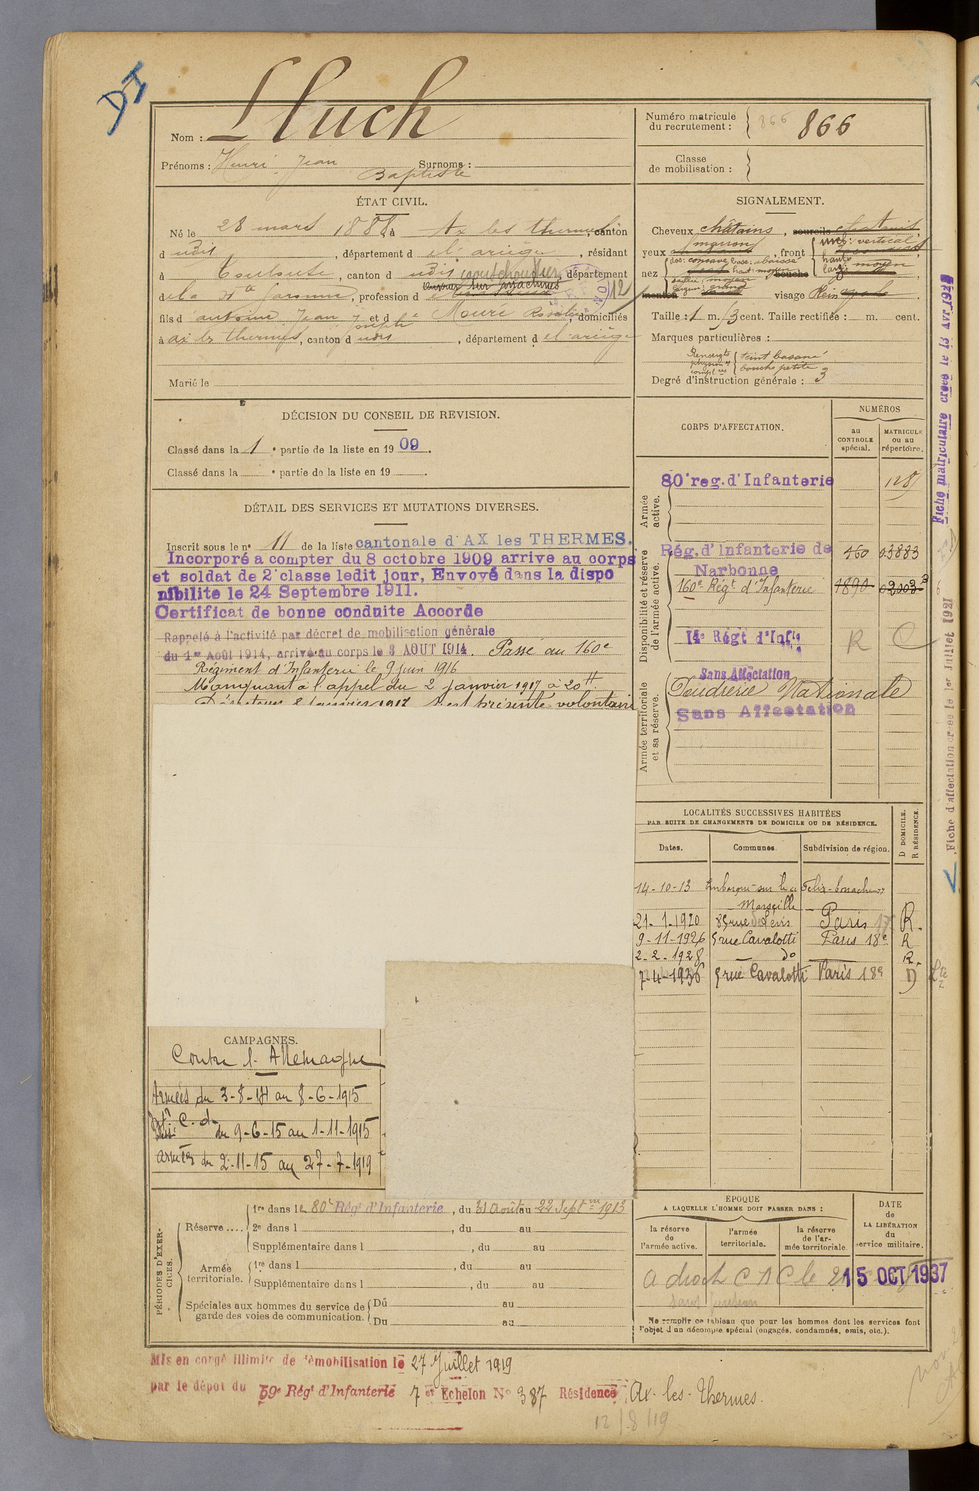 DI
Nom : Lluch
Prénoms : Henri Jean Surnoms :
Baptiste
ÉTAT CIVIL.
Né le 28 mars 1888 à Ax les thermes, canton
d udit, département de l'ariège, résidant
à Toulouse, canton d udit, caoutchoutier, département
de la Hte Garonne, profession d
fils d' antoine Jean Joseph et de Moure Rosalie, domiciliés
à ax les thermes, canton d udit, département de l'ariège
Marié le
DÉCISION DU CONSEIL DE REVISION.
Classé dans la 1e partie de la liste en 1909.
Classé dans la e partie de la liste en 19 .
DÉTAIL DES SERVICES ET MUTATIONS DIVERSES.
Inscrit sous le n° 11 de la liste cantonale d'AX les THERMES.
Incorporé a compter du 8 octobre 1909 arrive au corps
et soldat de 2e classe ledit jour, Envoyé dans la dispo
nibilite le 24 Septembre 1911.
Certificat de bonne conduite Accorde
Rappelé à l'activité par décret de mobilisation générale
du 1er Août 1914, arrivé au corps le 3 AOUT 1914. Passé au 160e
Régiment d'Infanterie le 9 juin 1916
Manquant à l'appel du 2 janvier 1917 à 20h
janvier 1917 s'est présenté volontair
CAMPAGNES.
Contre l'Allemagne
Armées du 3-8-14 au 8-6-1915
C. d. du 9-6-15 au 1-11-1915
Armées du 2-11-15 au 27-7-1919
PÉRIODES D'EXERCICES.
Réserve ....
1re dans le 80e Régt d'Infanterie, du 31 Août au 22 Septbre 1913
2e dans l , du au
Supplémentaire dans l , du au
Armée territoriale.
1re dans l , du au
Supplémentaire dans l , du au
Spéciales aux hommes du service de garde des voies de communication.
Du au
Du au
Numéro matricule du recrutement : 866 866
Classe de mobilisation :
SIGNALEMENT.
Cheveux châtains, sourcils chatains
yeux marron, front vertical
nez , bouche
menton visage Plein
Taille : 1 m. 73 cent. Taille rectifiée : m. cent.
Marques particulières :
teint basané
bouche petite
Degré d'instruction générale : 3
CORPS D'AFFECTATION.
NUMÉROS
au CONTROLE spécial.
MATRICULE ou au répertoire.
Armée active.
80e reg. d'Infanterie
Disponibilité et réserve de l'armée active.
Rég. d'Infanterie de Narbonne 460 03883
160e Régt d'Infanterie 1890
14e Régt d'Infie R C
Armée territoriale et sa réserve.
Sans Affectation
Poudrerie Nationale
Sans Affectation
LOCALITÉS SUCCESSIVES HABITÉES
PAR SUITE DE CHANGEMENTS DE DOMICILE OU DE RÉSIDENCE.
Dates. Communes. Subdivision de région. D DOMICILE. R RÉSIDENCE.
14-10-13
Marseille
21-1-1920 Paris 17e R.
9-11-1926 5 rue Cavalotti Paris 18e R
2-2-1928 — do — R.
7-4-1936 5 rue Cavalotti Paris 18e D
ÉPOQUE
A LAQUELLE L'HOMME DOIT PASSER DANS :
la réserve de l'armée active.
l'armée territoriale.
la réserve de l'armée territoriale
DATE de LA LIBÉRATION du service militaire.
a droit C A C le
15 OCT 1937
Ne remplir ce tableau que pour les hommes dont les services font
l'objet d'un décompte spécial (engagés, condamnés, omis, etc.).
Fiche matriculaire créée le 13 Avr 1926
Fiche d'affectation créée le 1er Juillet 1921
Mis en congé illimité de démobilisation le 27 Juillet 1919
par le dépôt du 59e Régt d'Infanterie 7e Echelon N° 387 Résidence Ax-les-Thermes.
12/8/19